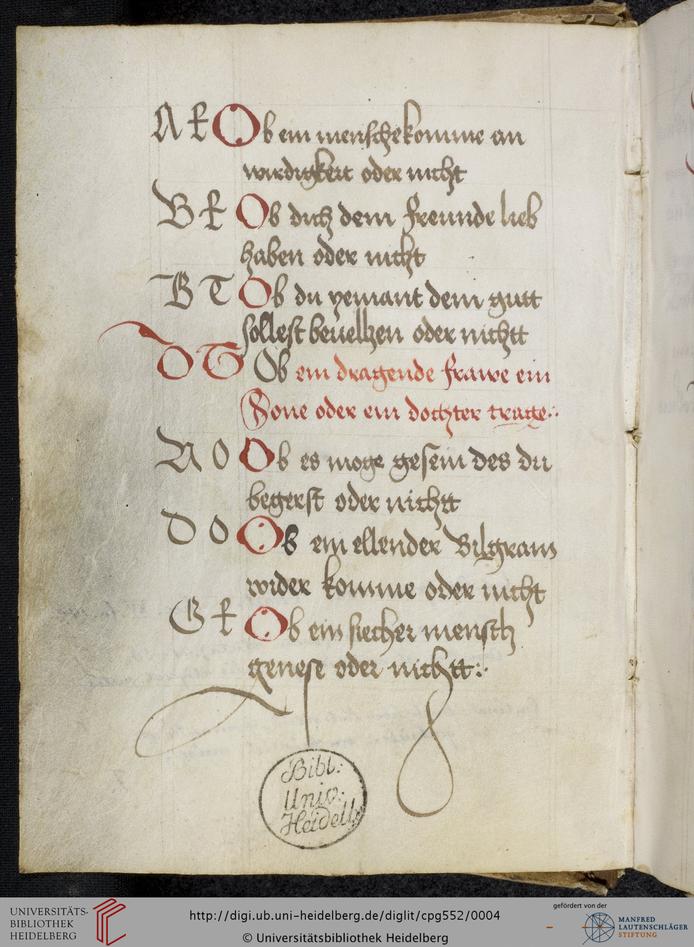 A ł Ob ein mensche komme an
wirdigkeit oder nicht
B ł Ob dich dem freunde lieb
haben oder nicht
B T Ob du yemant dem gutt
sollest beuelhen oder nichtt
D T Ob ein dragende frawe ein
Sone oder ein dochter trage
N O Ob es moge gesein des du
begerst oder nichtt
D O Ob ein ellender Bilgram
wider komme oder nicht
G ł Ob ein siecher mensch
genese oder nichtt
Bibl:
Univ:
Heidelb.
UNIVERSITÄTS-
BIBLIOTHEK
HEIDELBERG
http://digi.ub.uni-heidelberg.de/diglit/cpg552/0004
© Universitätsbibliothek Heidelberg
gefördert von der
MANFRED
LAUTENSCHLÄGER
STIFTUNG